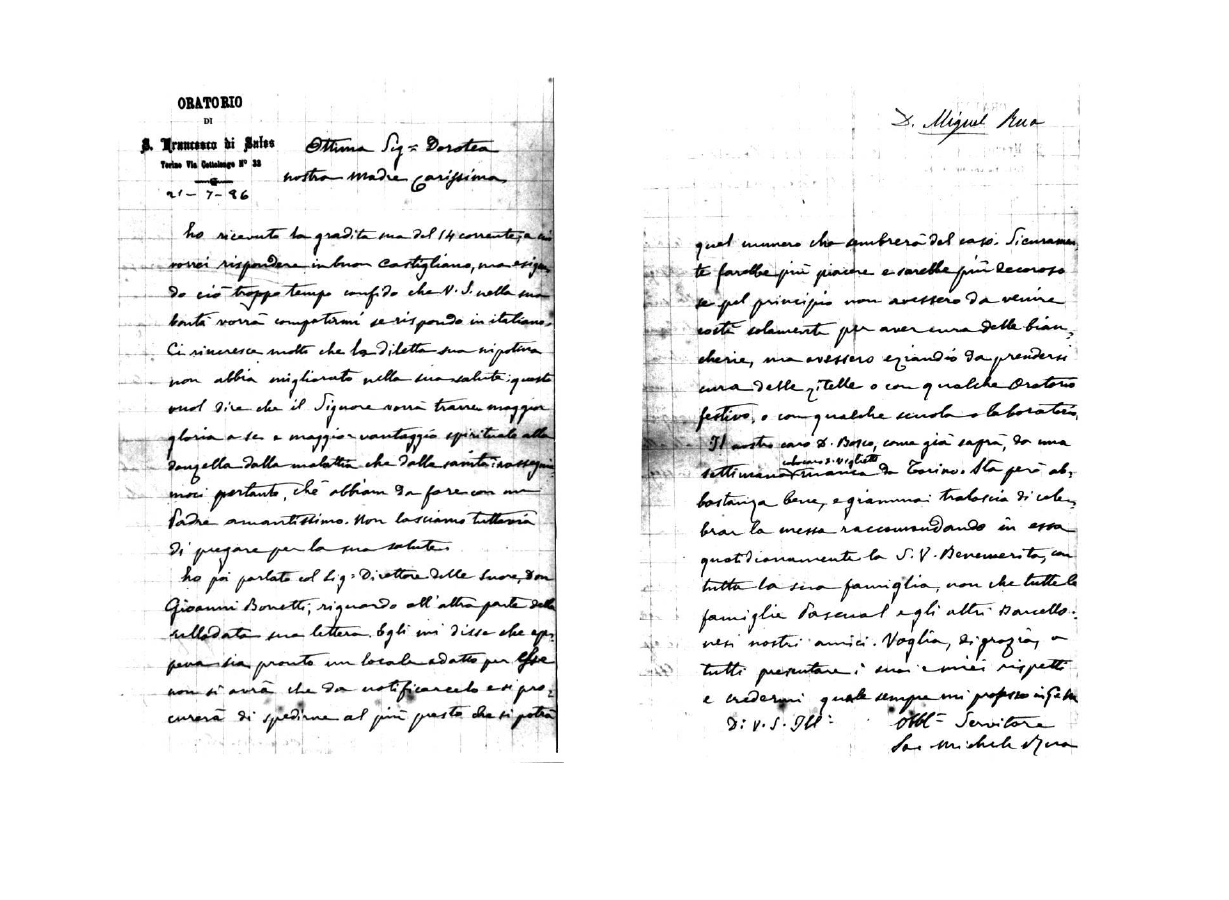 ORATORIO
DI
S. Francesco di Sales
Torino Via Cottolengo Nº 32
21-7-86
Ottima Sigª Dorotea
nostra Madre Carissima
ho ricevuta la gradita sua del 14 corrente, a cui
vorrei rispondere in buon Castigliano, ma esigen
do ciò troppo tempo confido che V. S. nella sua
bontà vorrà compatirmi se rispondo in italiano.
Ci rincresce molto che la diletta sua nipotina
non abbia migliorato nella sua salute; questo
vuol dire che il Signore vorrà trarre maggior
gloria a se e maggior vantaggio spirituale alla
donzella dalla malattia che dalla sanità: rassegnia
moci pertanto, chè abbiam da fare con un
Padre amantissimo. Non lasciamo tuttavia
di pregare per la sua salute.
ho poi parlato col Sig: Direttore delle Suore, Don
Giovanni Bonetti, riguardo all'altra parte della
sullodata sua lettera. Egli mi disse che ap-
pena sia pronto un locale adatto per Esse
non si avrà che da notificarcelo e si pro-
curerà di spedirne al più presto che si potrà
D. Miguel Rua
quel numero che sembrerà del caso. Sicuramen
te farebbe più piacere e sarebbe più decoroso
se pel principio non avessero da venire
costà solamente per aver cura delle bian-
cherie, ma avessero eziandio da prendersi
cura delle zitelle o con qualche Oratorio
festivo, o con qualche scuola o laboratorio.
Il nostro caro D. Bosco, come già saprà, da una
col caro D. Viglietti
settimana manca da Torino. Sta però ab-
bastanza bene, e giammai tralascia di cele-
brar la messa raccomandando in essa
quotidianamente la S. V. Benemerita, con
tutta la sua famiglia, non che tutte le
famiglie Pascual e gli altri Barcello-
nesi nostri amici. Voglia, di grazia, a
tutti presentare i suoi e miei rispetti
e credermi quale sempre mi professo in G. e M.
Di V. S. Ill:
Obblº Servitore
Sac Michele Rua